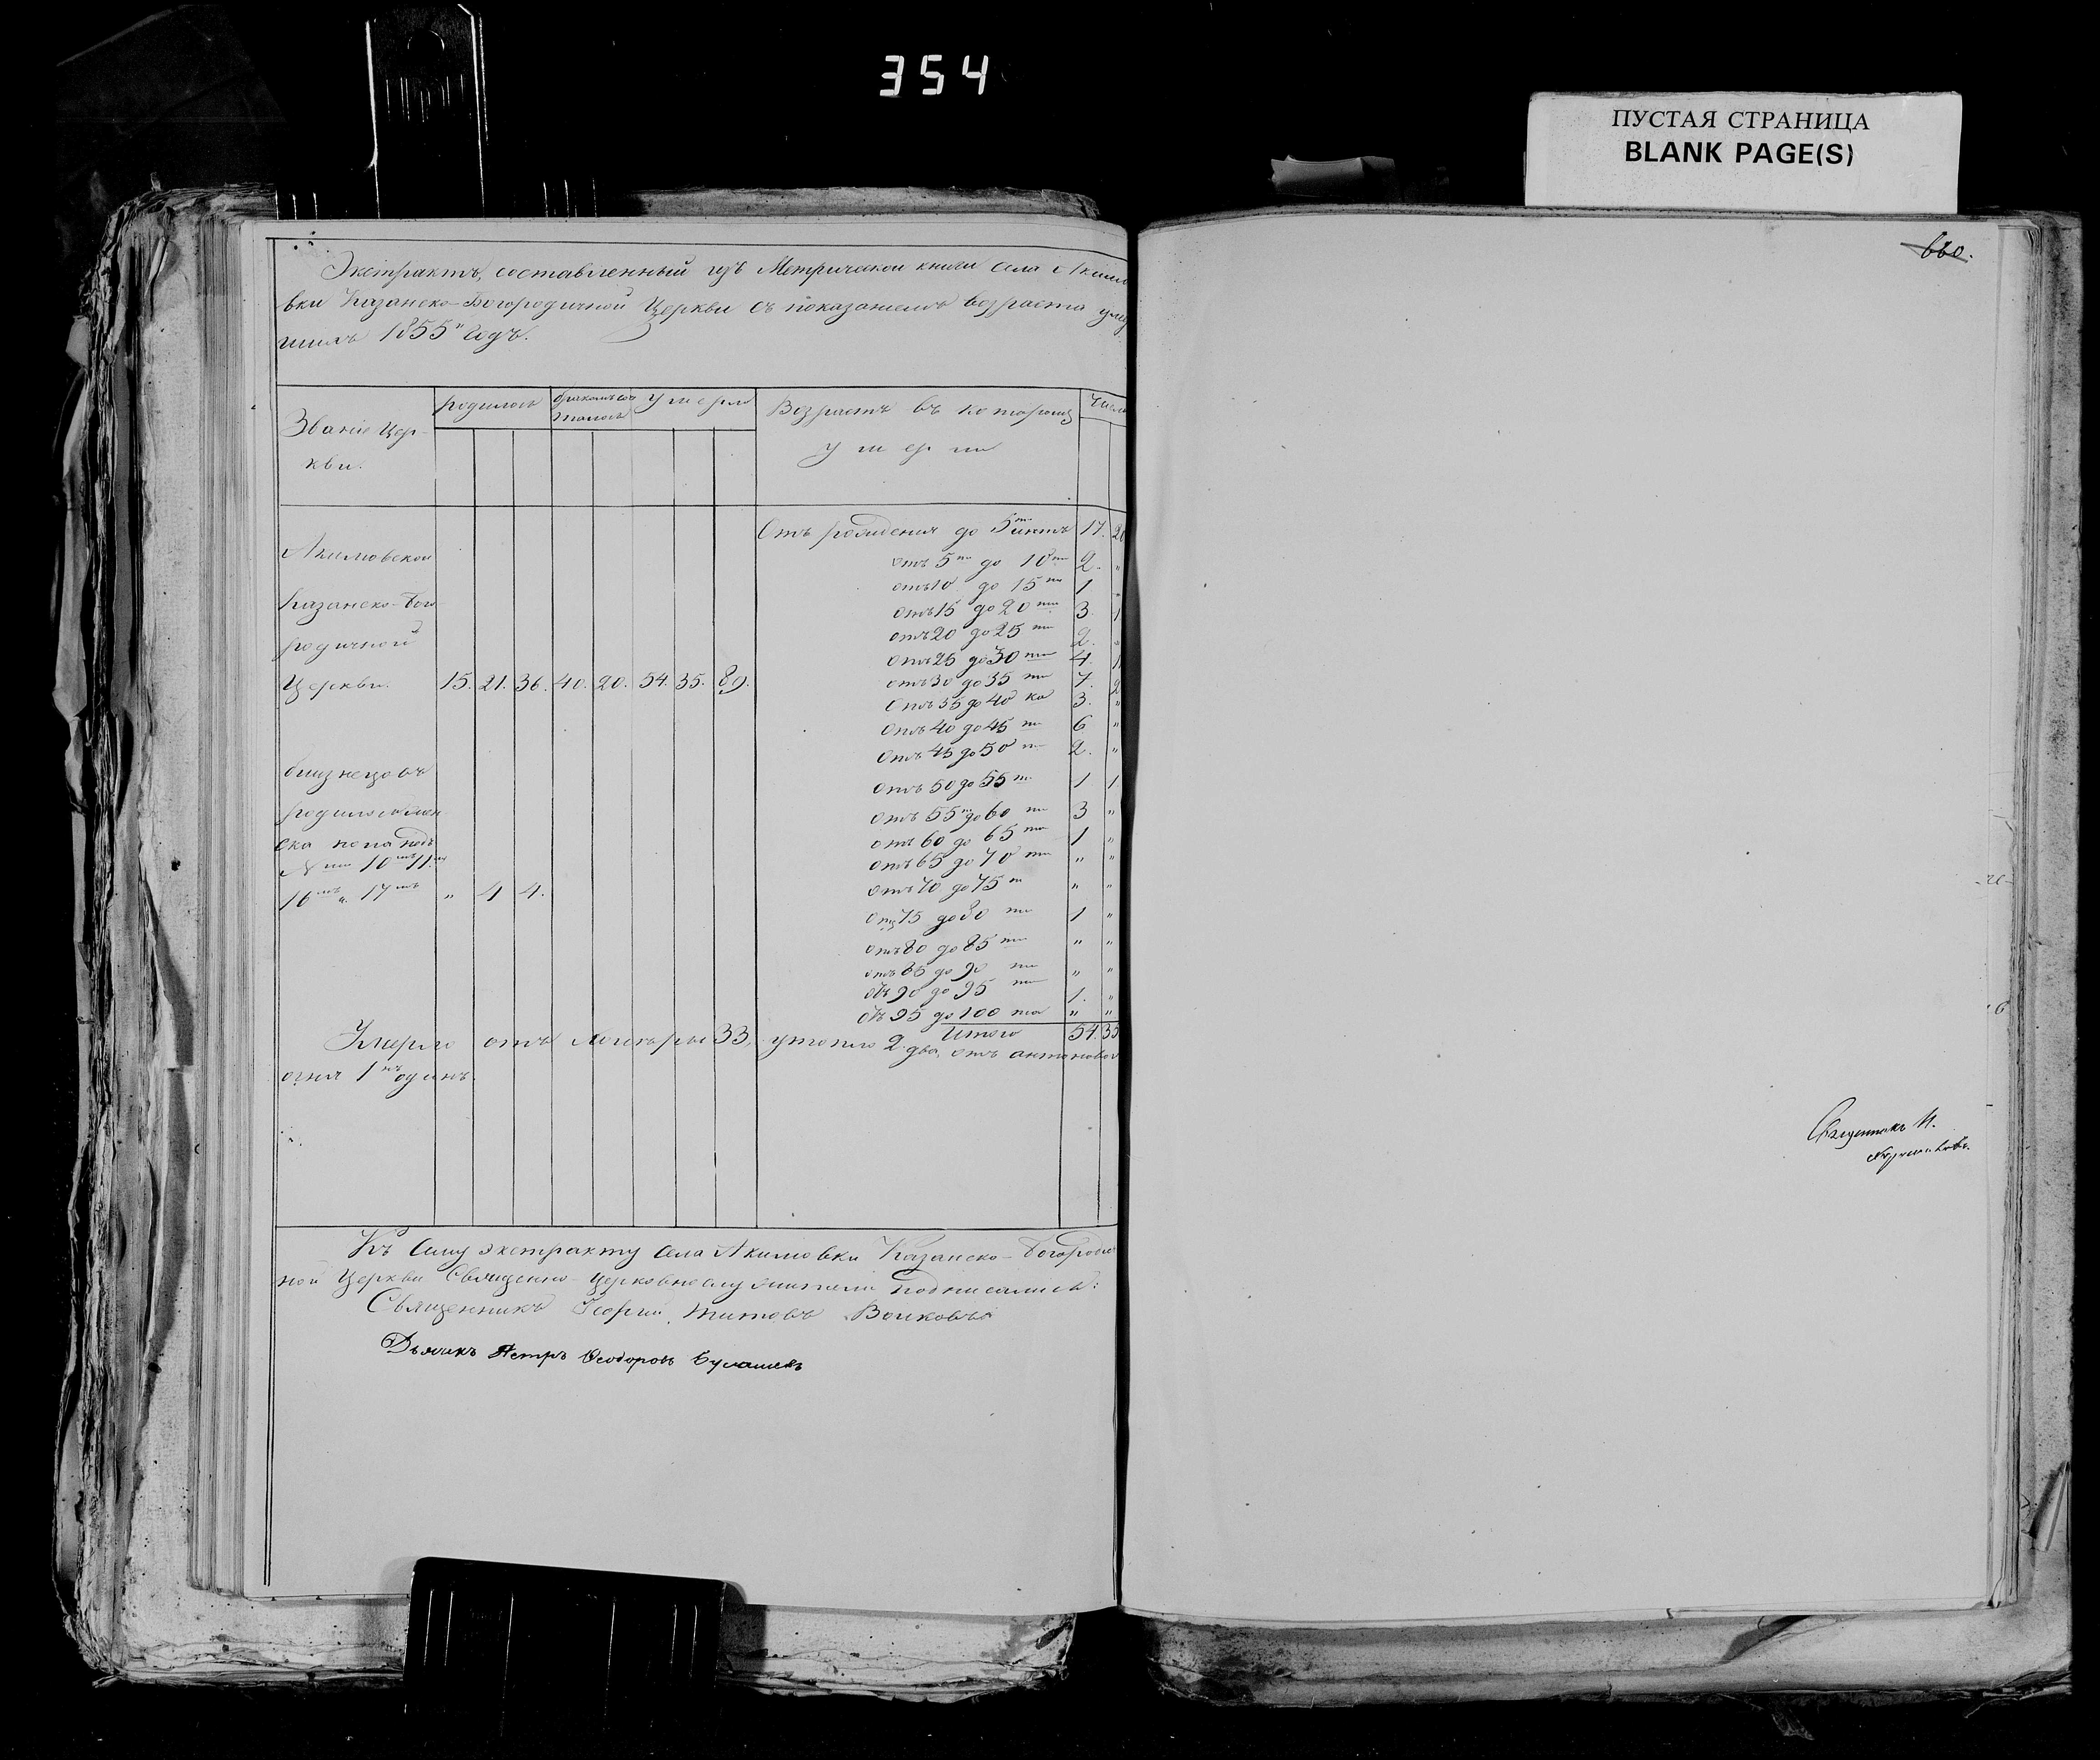 354
ПУСТАЯ СТРАНИЦА
BLANK PAGE(S)
660.
Экстрактъ, составленный изъ Метрической книги села Акимо
вки Казанско-Богородичной Церкви съ показаніемъ возраста уме
шихъ 1855 годъ.
Званіе Цер-
кви.
родилось
бракомъ соч
талось
умерло
Возрастъ въ которомъ
умерли
Число
Отъ рожденія до 5ти лѣтъ 17. 20
Акимовской
отъ 5ти до 10ти 2. "
отъ 10 до 15ти 1 "
Казанско-Бого
отъ 15 до 20ти 3. 1
родичной
отъ 20 до 25ти 2. "
отъ 25 до 30ти 4. 11
Церкви. 15. 21. 36. 40. 20. 54. 35. 89.
отъ 30 до 35ти 7. 2
отъ 35 до 40ка 3. "
отъ 40 до 45ти 6 "
отъ 45 до 50ти 2. "
близнецовъ
отъ 50 до 55ти 1 1.
родилось женска пола подъ
отъ 55ти до 60ти 3 "
отъ 60 до 65ти 1 "
№ 10мъ 11мъ
отъ 65 до 70ти " "
16мъ и 17мъ " 4 4.
отъ 70 до 75ти " "
отъ 75 до 80ти 1 "
отъ 80 до 85ти " "
отъ 85 до 90ти " "
отъ 90 до 95ти 1. "
отъ 95 до 100та " "
Итого 54. 35
Умерло отъ холеры 33, утопло 2 два, отъ антонова
огня 1нъ одинъ.
Къ сему экстракту села Акимовки Казанско-Богородич
ной Церкви Священно-церковнослужители подписались:
Священникъ Георгій Титовъ Волковъ
Дьячекъ Петръ Ѳеодоровъ Булашевъ
Священникъ И.